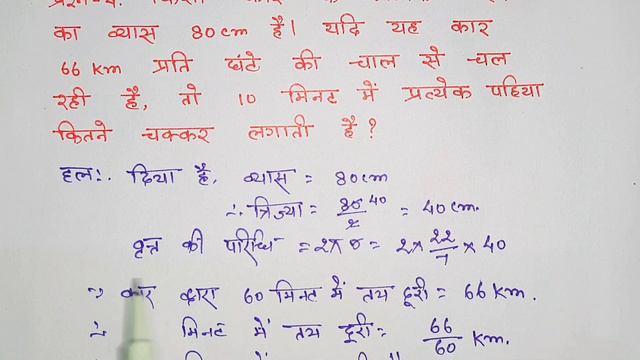 का व्यास 80cm है। यदि यह कार
66 Km प्रति घंटे की चाल से चल
रही है, तो 10 मिनट में प्रत्येक पहिया
कितने चक्कर लगाती है?
हल:. दिया है, व्यास = 80cm
∴ त्रिज्या = 80/2 40 = 40cm.
वृत्त की परिधि = 2πr = 2 × 22/7 × 40
∵ कार द्वारा 60 मिनट में तय दूरी = 66 Km.
∴ मिनट में तय दूरी = 66/60 Km.